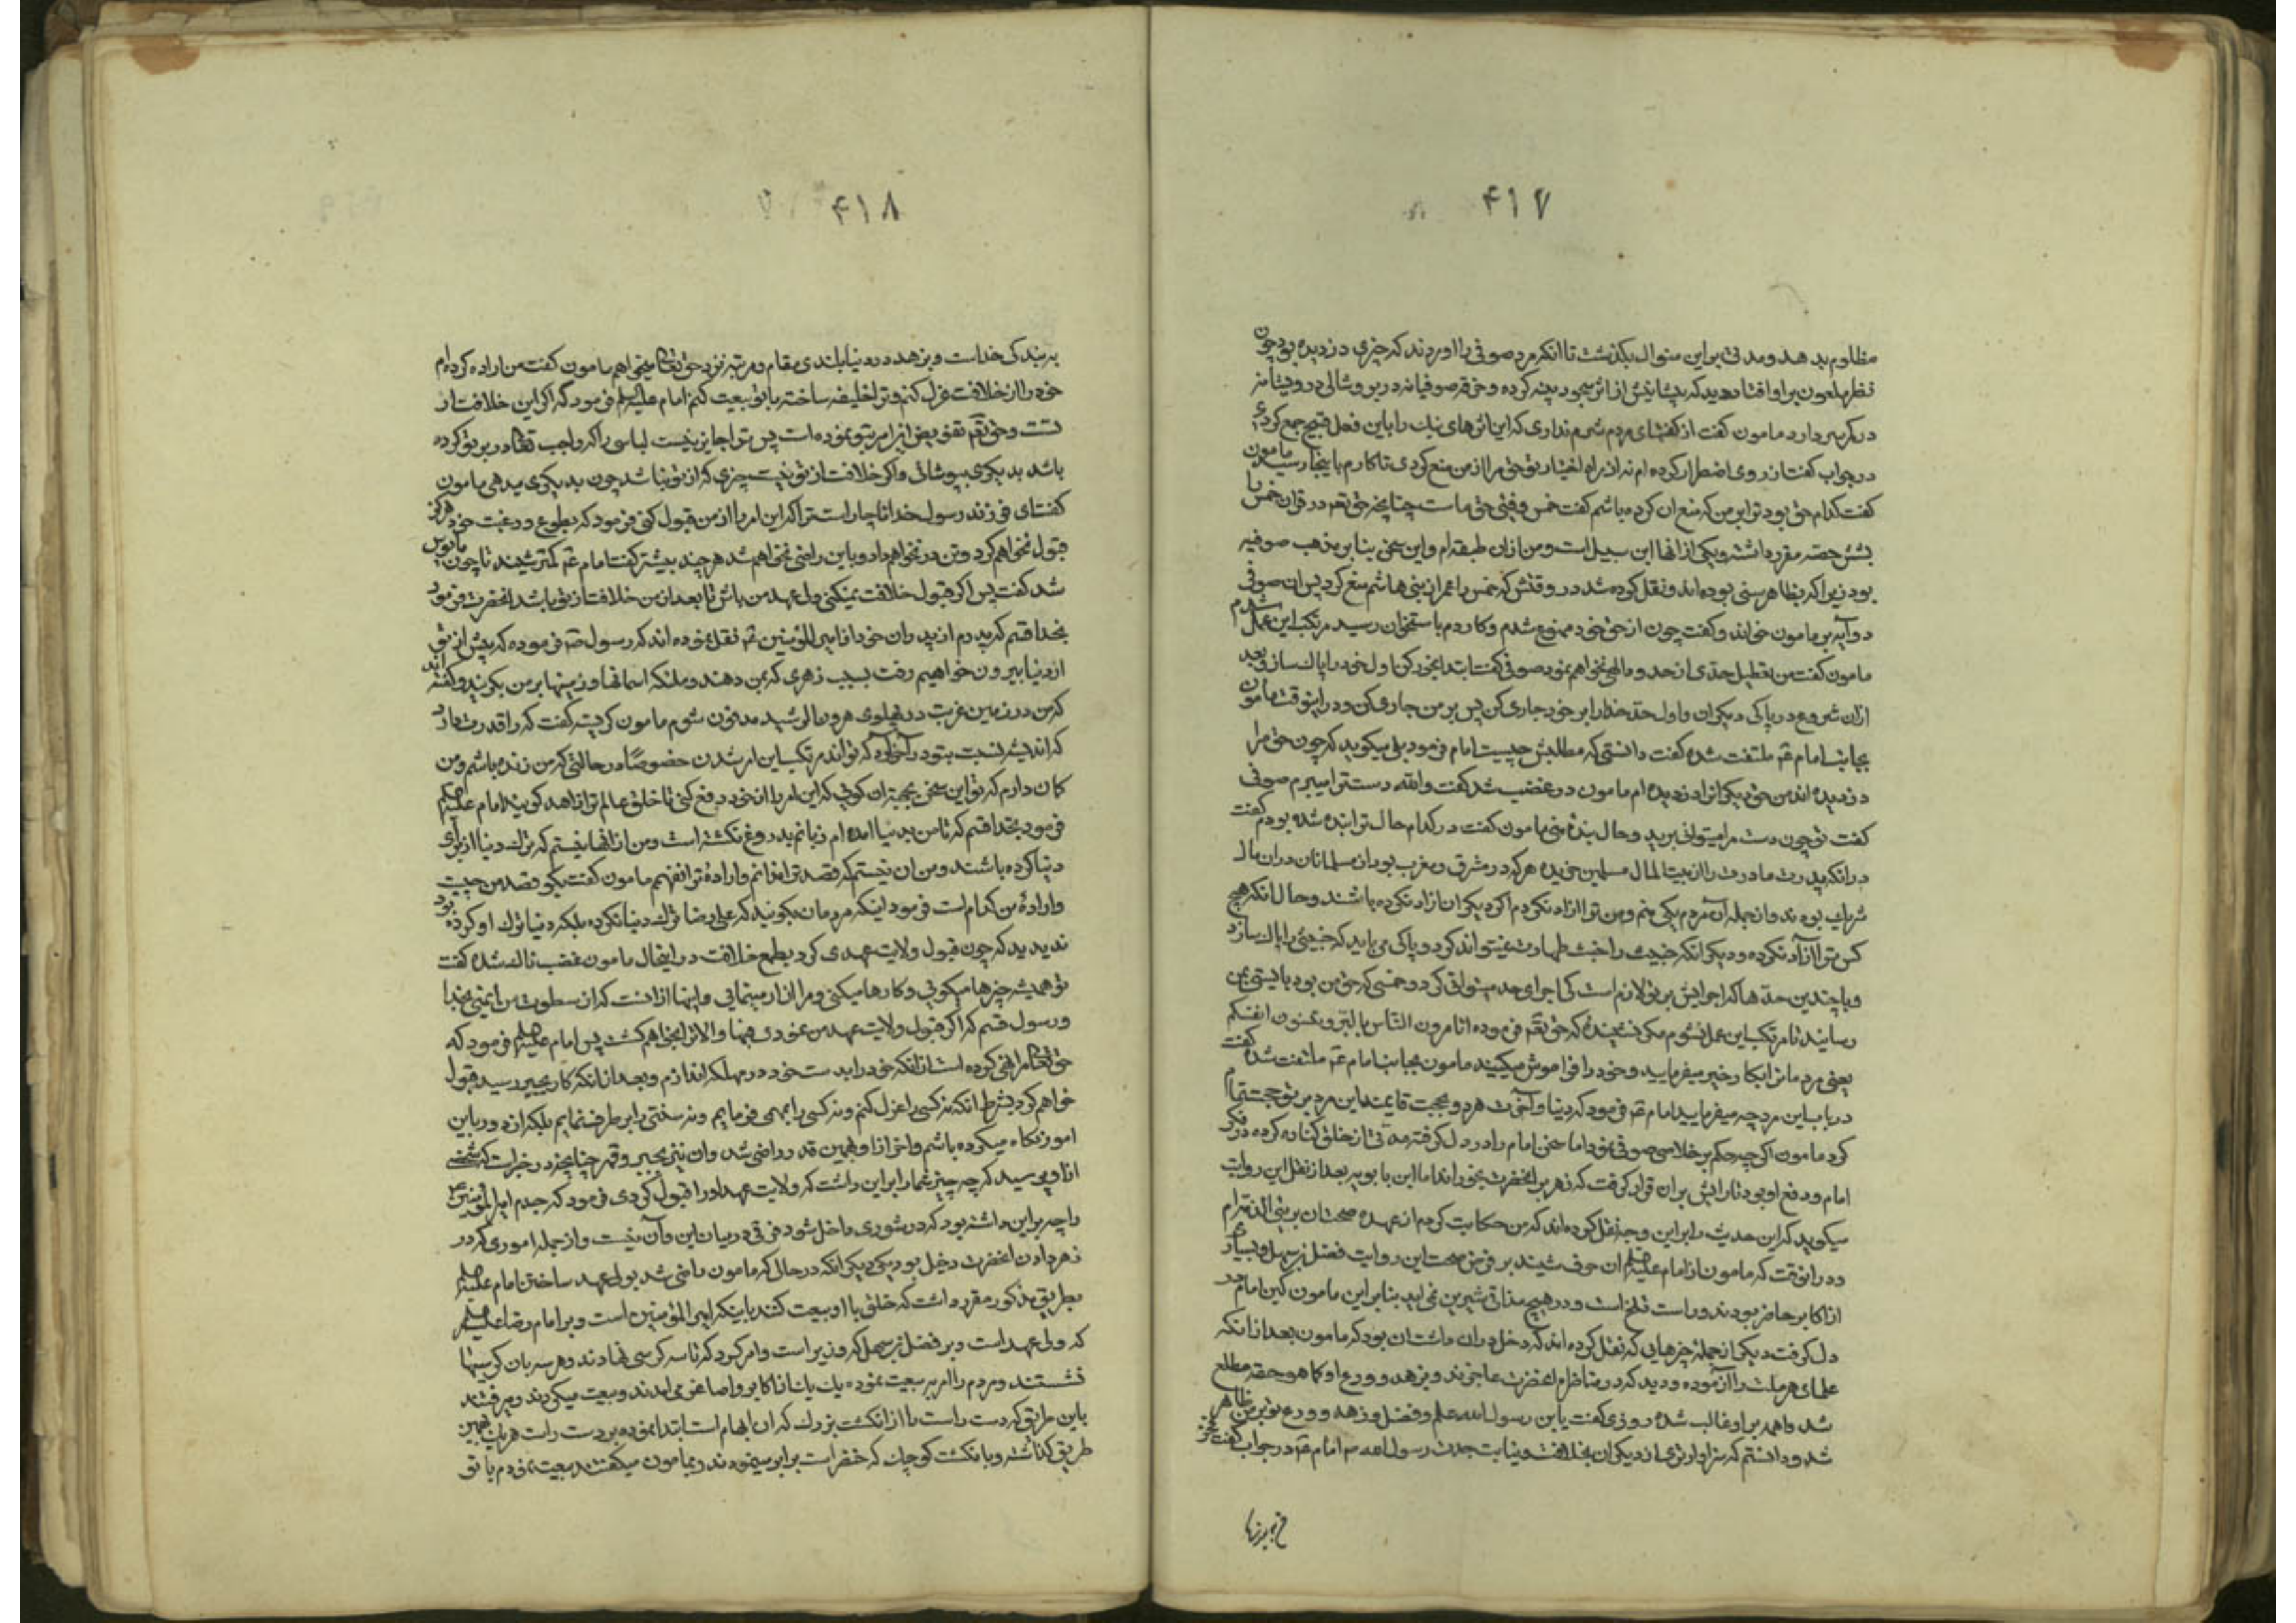 ۴۱۷
مظلوم بدهد ومدتی براین منوال بگذشت تا انکه مرد صوفی را اوردند که چیزی دزدیده بود چون
نظر ملعون براو افتاد دید که پیشانیش از اثر سجود پینه کرده و خرقه صوفیانه در بر و شالی درویشانه
در کمر دارد مامون گفت از گفتهای مردم شرم نداری که این اثرهای نیک را باین فعل قبیح جمع کرده
در جواب گفت از روی اضطرار کرده ام نه از راه اختیار تو حق مرا از من منع کردی تا کارم باینجا رسید مامون
گفت کدام حق بود ترا بر من که منع ان کرده باشم گفت خمس و فیئی حق ماست چنانچه حق تعم در قران خمس را
بشش حصه مقرر داشته ویکی از انها ابن سبیل است ومن ازان طبقه ام واین سخن بنا بر مذهب صوفیه
بود زیرا که بظاهر سنی بوده اند ونقل کرده شد در وقتش که خمس را عمر از بنی هاشم منع کرد پس ان صوفی
دو آیه بر مامون خواند وگفت چون از حق خود ممنوع شدم وکاردم باستخوان رسید مرتکب این عمل شدم
مامون گفت من تعطیل حدی از حدود الهی نخواهم نمود صوفی گفت ابتدا بخود کن اول خود را پاک ساز وبعد
ازان شروع در پاکی دیگران واول حد خدا را بر خود جاری کن پس بر من جاری کن ودر اینوقت مامون
بجانب امام عم ملتفت شده گفت دانستی که مطلبش چیست امام فرمود بلی میگوید که چون حق مرا
دزدیده اند من حق دیگر انرا دزدیده ام مامون در غضب شد گفت والله دستت را میبرم صوفی
گفت تو چون دست مرا میتوانی برید وحال بندهٔ منی مامون گفت در کدام حال ترا بنده شده بودم گفت
درانکه پدرت مادرت را از بیت المال مسلمین خریده هر که در مشرق ومغرب بود از مسلمانان دران مال
شریک بودند واز جمله آن مردم یکی منم ومن ترا ازاد نکردم اگر دیگران ازاد نکرده باشند وحال انکه هیچ
کس ترا ازاد نکرده ودیگر انکه خبیث را خبث طهارت نمیتواند کرد وپاکی می باید که خبیثی را پاک سازد
وباچندین حدها که اجرایش بر تو لازم است کی اجرای حد میتوانی کرد وخمسی که حق من بود بایستی بمن
رسانید تا مرتکب این عمل نشوم مگر نشنیدهٔ که حق تعم فرموده اتامرون الناس بالبر وتنسون انفسکم
یعنی مردمانرا بکار خیر میفرمایید وخود را فراموش میکنید مامون بجانب امام عم ملتفت شده گفت
در باب این مرد چه میفرمایید امام عم فرمود که دنیا وآخرت هر دو بحجت قایمند این مرد بر تو حجت تمام
کرد مامون اگرچه حکم بر خلاصی صوفی نمود اما سخن امام را در دل گرفته مدتی از خلق کناره کرده در فکر
امام ودفع او بود تا رایش بران قرار گرفت که زهر بر انحضرت بخوراند اما ابن بابویه بعد از نقل این روایت
میگوید که این حدیث را براین وجه نقل کرده اند که من حکایت کردم از عهده صحت ان بری الذمه ام
ودرانوقت که مامون از امام علیه السلام ان حرف شنید بر فرض صحت این روایت فضل بن سهل وبسیاری
از اکابر حاضر بودند وراست تلخ است ودر هیچ مذاق شیرین نمی اید بنابر این مامون کین امام در
دل گرفت ودیگر از جملهٔ چیزهایی که نقل کرده اند که دخل دران داشت ان بود که مامون بعد از انکه
علمای هر ملت را آزموده ودید که در مناظره انحضرت عاجزند وبزهد و ورع او کما هو حقه مطلع
شد واهمه بر او غالب شده روزی گفت یا بن رسول الله علم وفضل وزهد و ورع تو بر من ظاهر
شد ودانستم که سزاوارتری از دیگران بخلافت ونیابت جدت رسول الله ص امام عم در جواب گفت فخر
۴۱۸
به بندگی خداست وبزهد در دنیا بلندی مقام ومرتبه نزد حق تعالی میخواهم مامون گفت من اراده کرده ام
خود را از خلافت عزل کنم وترا خلیفه ساخته با تو بیعت کنم امام علیه السلم فرمود که اگر این خلافت از
تست وحق تعم تفویض این امر بتو نموده است پس ترا جایز نیست لباسی را که واجب تعالی در بر تو کرده
باشد بدیگری بپوشانی واگر خلافت از تو نیست چیزی که از تو نباشد چون بدیگری میدهی مامون
گفت ای فرزند رسول خدا ناچار است ترا که این امر را از من قبول کنی فرمود که بطوع ورغبت خود هرگز
قبول نخواهم کرد وتن در نخواهم داد وباین راضی نخواهم شد هر چند بیشتر گفت امام عم کمتر شنید تا چون مایوس
شد گفت پس اگر قبول خلافت نمیکنی ولی عهد من باش تا بعد از من خلافت از تو باشد انحضرت فرمود
بخدا قسم که پدرم از پدران خود از امیر المؤمنین عم نقل نموده اند که رسول ص فرموده که پیش از تو
از دنیا بیرون خواهیم رفت بسبب زهری که بمن دهند وملئکه اسمانها وزمینها بر من بگریند وگفته اند
که من در زمین غربت در پهلوی هرون الرشید مدفون شوم مامون گریسته گفت که را قدرت دارد
که اندیشه نسبت بتو در آخر کند که تواند مرتکب این امر شدن خصوصا در حالتی که من زنده باشم ومن
گمان دارم که تو این سخن بجهة ان گوئی که این امر را از خود دفع کنی تا خلق عالم ترا زاهد گویند امام علیه السلم
فرمود بخدا قسم که تا من بدنیا امده ام زبانم بدروغ نگشته است ومن از انها نیستم که ترک دنیا از برای
دنیا کرده باشند ومن ان نیستم که قصد ترا ندانم وارادهٔ ترا نفهمم مامون گفت بگو قصد من چیست
وارادهٔ من کدام است فرمود اینکه مردمان بگویند که علی رضا ترک دنیا نکرده بلکه دنیا ترک او کرده بود
ندیدید که چون قبول ولایت عهدی کرد بطمع خلافت در اینحال مامون غضب ناک شده گفت
تو همیشه چیزها میگویی وکارها میکنی ومرا ازار مینمایی واینها ازانست که از سطوت من ایمنی بخدا
ورسول قسم که اگر قبول ولایت عهد من نمودی فبها والا ترا بخواهم کشت پس امام علیه السلم فرمود که
حق تعالی مرا نهی کرده است از انکه خود را بدست خود در مهلکه اندازم وبعد از انکه کار بجبر رسید قبول
خواهم کرد بشرط انکه نه کسی را عزل کنم ونه کسی را بمهمی فرمایم ونه سنتی را بر طرف نمایم بلکه از دور باین
امور نگاه میکرده باشم واخر از او بهمین قدر راضی شد وان نیز بجبر وقهر چنانچه در خبر است که شخصی
از او پرسید که چه چیز شما را براین داشت که ولایت عهد او را قبول کردی فرمود که جدم امیر المؤمنین ع
را چه براین داشته بود که در شوری داخل شود فرقی درمیان این وآن نیست واز جمله اموری که در
زهر دادن انحضرت دخیل بود یکی دیگر انکه در حال که مامون راضی شد بولی عهد ساختن امام علیه السلم
بطریق مذکور مقرر داشت که خلق با او بیعت کنند باینکه امیر المؤمنین است وبر امام رضا علیه السلم
که ولی عهد است وبر فضل بن سهل که وزیر است وامر کرد که تا سه کرسی نهادند وهر سه بان کرسیها
نشستند ومردم را امر به بیعت نموده یک یک از اکابر واصاغر می امدند وبیعت میکردند ومیرفتند
باین طریق که دست راست را از انگشت بزرگ که ان ابهام است ابتدا نموده بر دست راست هر یک بهمین
طریق گذاشته وبا نگشت کوچک که خنصر است برابر مینمودند وبمامون میگفتند بیعت نمودم با تو